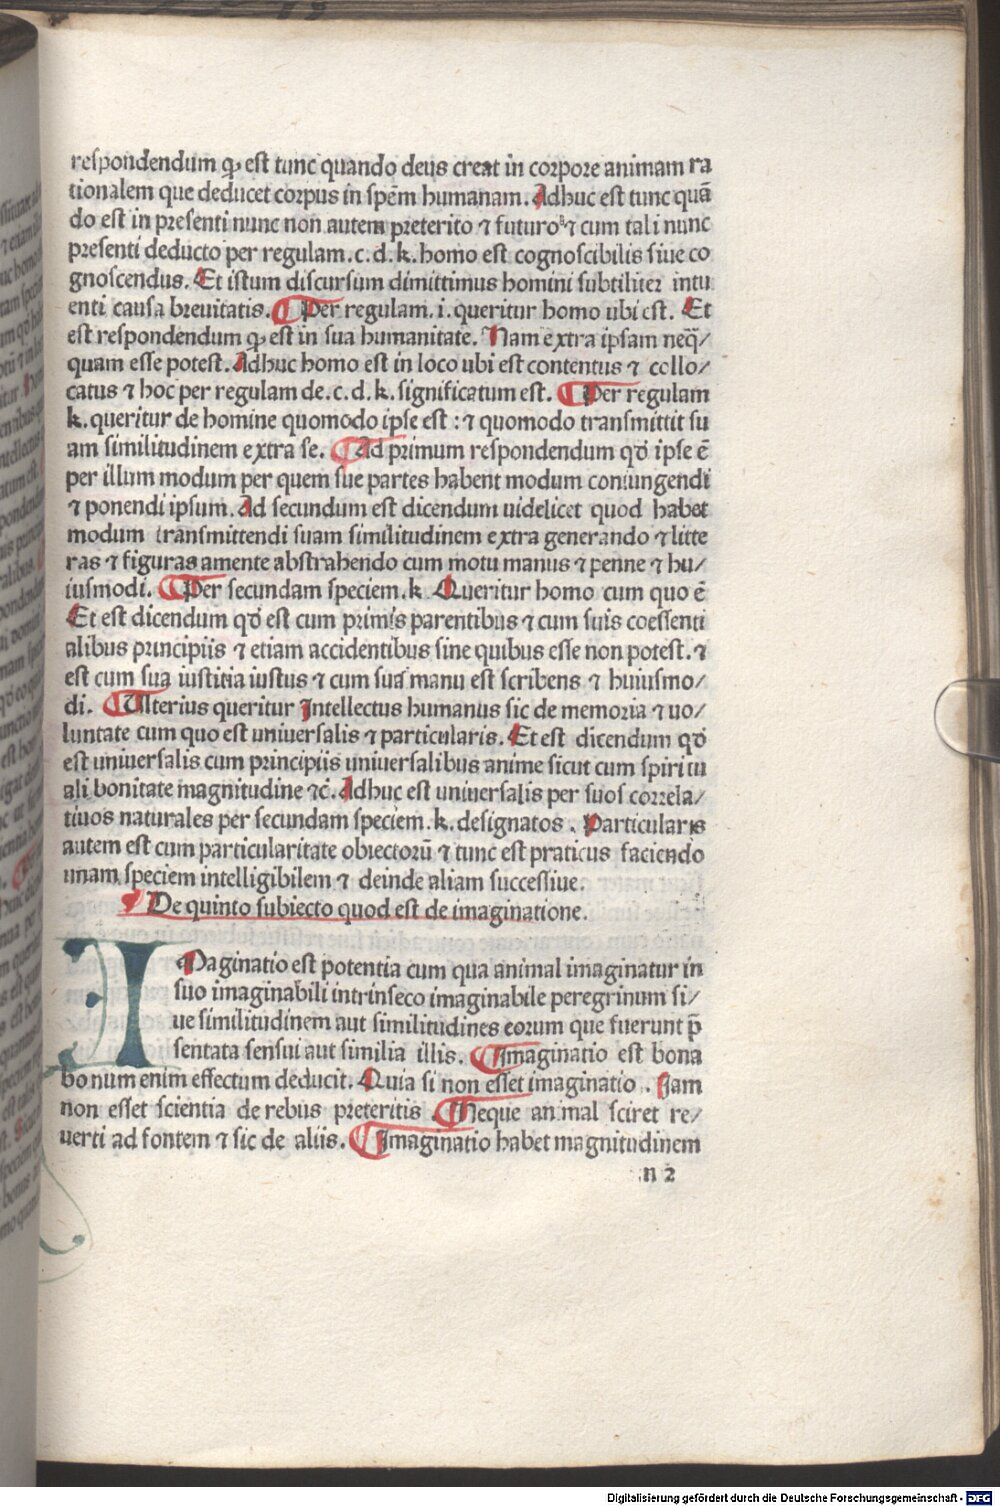 respondendum ꝙ est tunc quando deus creat in corpore animam ra
tionalem que deducet corpus in spēm humanam. Adhuc est tunc quā
do est in presenti nunc non autem preterito ⁊ futuro ⁊ cum tali nunc
presenti deducto per regulam. c. d. k. homo est cognoscibilis siue co
gnoscendus. Et istum discursum dimittimus homini subtiliter intu
enti causa breuitatis. ¶ Per regulam. i. queritur homo ubi est. Et
est respondendum ꝙ est in sua humanitate. Nam extra ipsam neq̄/
quam esse potest. Adhuc homo est in loco ubi est contentus ⁊ collo/
catus ⁊ hoc per regulam de. c. d. k. significatum est. ¶ Per regulam
k. queritur de homine quomodo ipse est : ⁊ quomodo transmittit su
am similitudinem extra se. ¶ Ad primum respondendum qđ ipse ē
per illum modum per quem sue partes habent modum coniungendi
⁊ ponendi ipsum. Ad secundum est dicendum uidelicet quod habet
modum transmittendi suam similitudinem extra generando ⁊ litte
ras ⁊ figuras amente abstrahendo cum motu manus ⁊ penne ⁊ hu/
iusmodi. ¶ Per secundam speciem. k Queritur homo cum quo ē
Et est dicendum qđ est cum primis parentibus ⁊ cum suis coessenti
alibus principiis ⁊ etiam accidentibus sine quibus esse non potest. ⁊
est cum sua iustitia iustus ⁊ cum sua manu est scribens ⁊ huiusmo/
di. ¶ Ulterius queritur Intellectus humanus sic de memoria ⁊ uo/
luntate cum quo est uniuersalis ⁊ particularis. Et est dicendum qđ
est uniuersalis cum principiis uniuersalibus anime sicut cum spiritu
ali bonitate magnitudine ⁊c̄. Adhuc est uniuersalis per suos correla/
tiuos naturales per secundam speciem. k. designatos . Particularis
autem est cum particularitate obiectorū ⁊ tunc est praticus faciendo
unam speciem intelligibilem ⁊ deinde aliam successiue.
¶ De quinto subiecto quod est de imaginatione.
IMaginatio est potentia cum qua animal imaginatur in
suo imaginabili intrinseco imaginabile peregrinum si/
ue similitudinem aut similitudines eorum que fuerunt p̄
sentata sensui aut similia illis. ¶ Imaginatio est bona
bonum enim effectum deducit. Quia si non esset imaginatio . Iam
non esset scientia de rebus preteritis ¶ Neque animal sciret re/
uerti ad fontem ⁊ sic de aliis. ¶ Imaginatio habet magnitudinem
n 2
Digitalisierung gefördert durch die Deutsche Forschungsgemeinschaft - DFG